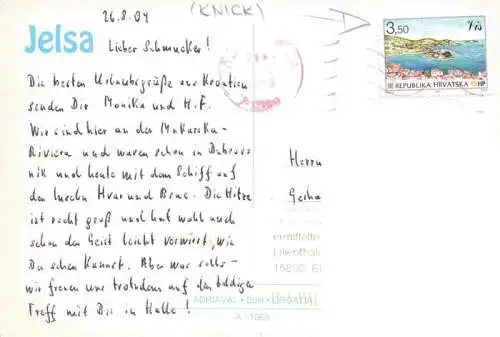 26.8.04
(KNICK)
Jelsa
Lieber Schmucker!
Die besten Urlaubsgrüße aus Kroatien
senden Dir Monika und H.F.
Wir sind hier an der Makarska-
Riviera und waren schon in Dubrov-
nik und heute mit dem Schiff auf
den Inseln Hvar und Brac. Die Hitze
ist recht groß und hat wohl auch
schon den Geist leicht verwirrt, wie
Du sehen kannst. Aber was solls -
wir freuen uns trotzdem auf den baldigen
Treff mit Dir in Halle!
3,50
Vis
REPUBLIKA HRVATSKA HP
Herrn
Gerha
ermittelte
Lilienthal
15890 Ei
ADRIAVAL • Split • CROATIA
A - 1865